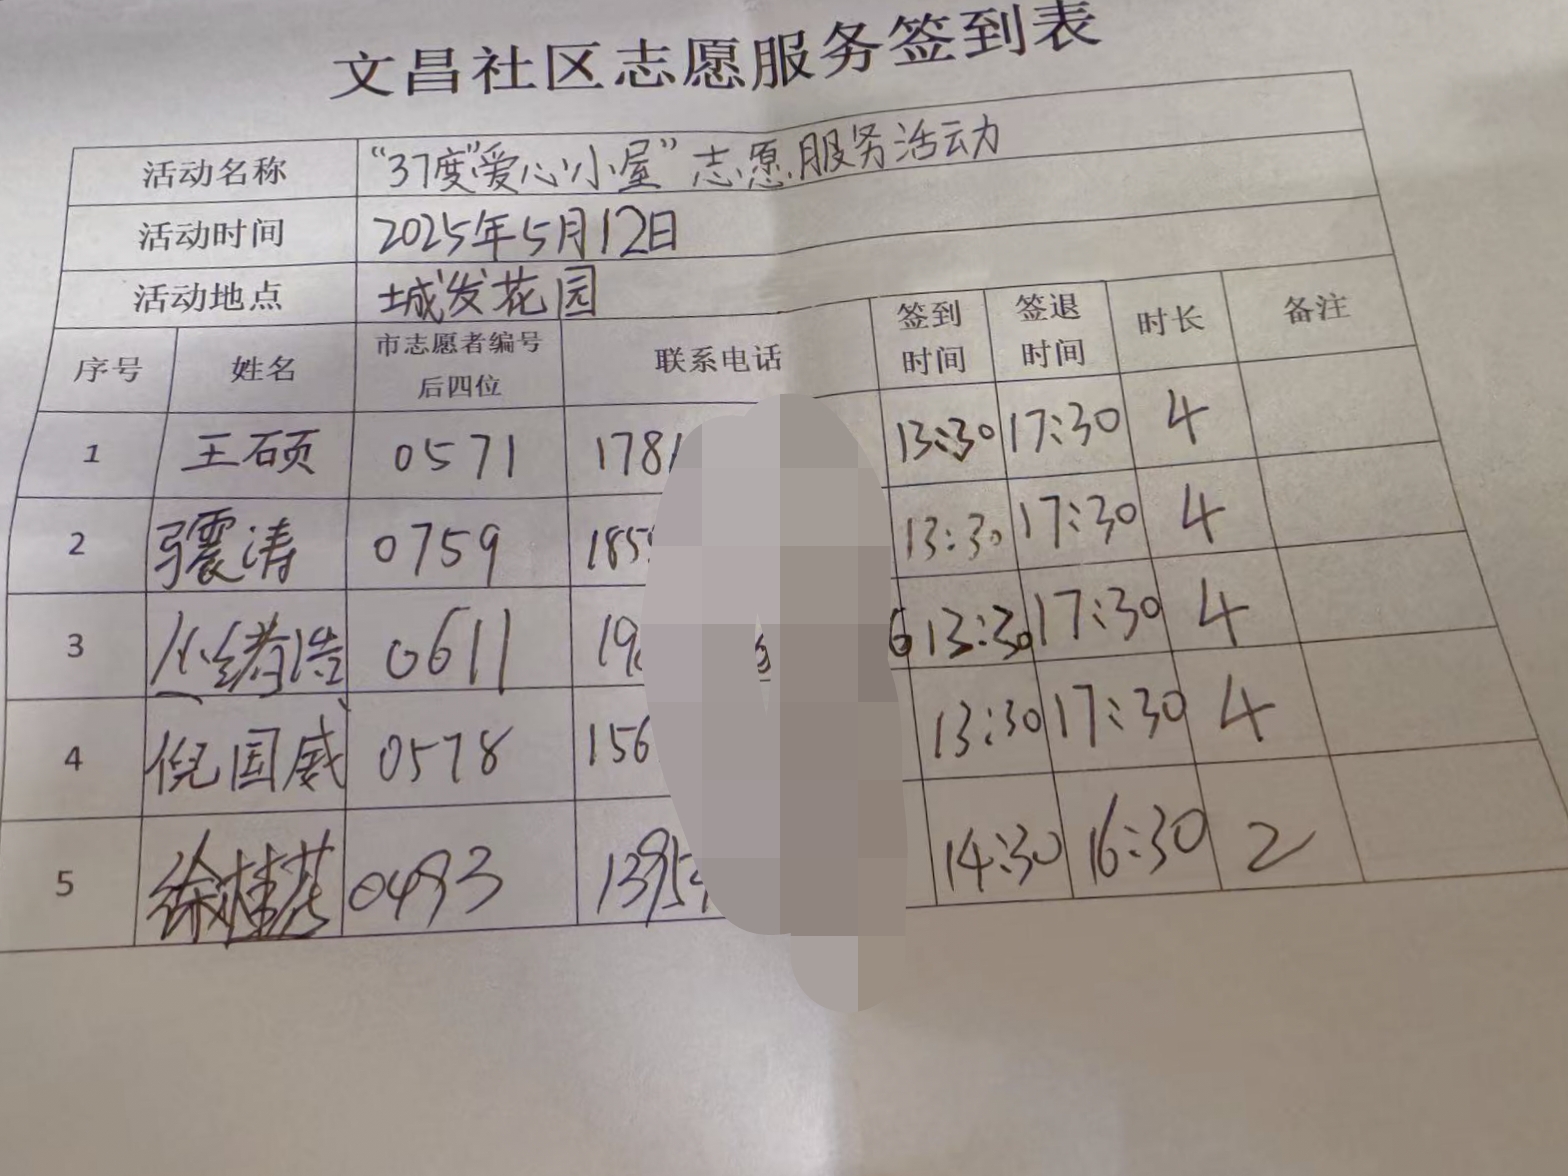 文昌社区志愿服务签到表
活动名称 "37度"爱心小屋"志愿服务活动
活动时间 2025年5月12日
活动地点 城发花园
序号 姓名 市志愿者编号后四位 联系电话 签到时间 签退时间 时长 备注
1 王硕 0571 1781 13:30 17:30 4
2 涛 0759 185 13:30 17:30 4
3 0611 19 6 13:30 17:30 4
4 倪国威 0578 156 13:30 17:30 4
5 徐桂 0493 1395 14:30 16:30 2